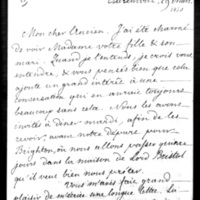 Mon cher Ancien. J'ai été charmé
de voir Madame votre fille & son
mari. Quand je l'entends, je crois vous
entendre, & vous pensez bien que cela
ajoute un grand intérêt à une
conversation qui en aurait toujours
beaucoup sans cela. Nous les avons
invités à dîner mardi, afin de les
revoir, avant notre départ pour
Brighton, où nous allons passer quinze
jours dans la maison de Lord Bristol
qu'il veut bien nous prêter.
Vous m'avez fait grand
plaisir de m'écrire une longue lettre.